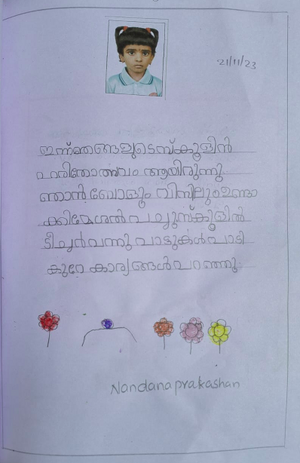 21/11/23
ഇന്ന് ഞങ്ങളുടെ സ്കൂളിൽ
ഹരിതോത്സവം ആയിരുന്നു
ഞാൻ ബോളും വിസിലും ഉണ്ടാ
ക്കി
ടീച്ചർ വന്നു പാട്ടുകൾ പാടി
കുറേ കാര്യങ്ങൾ പറഞ്ഞു
Nandana prakashan